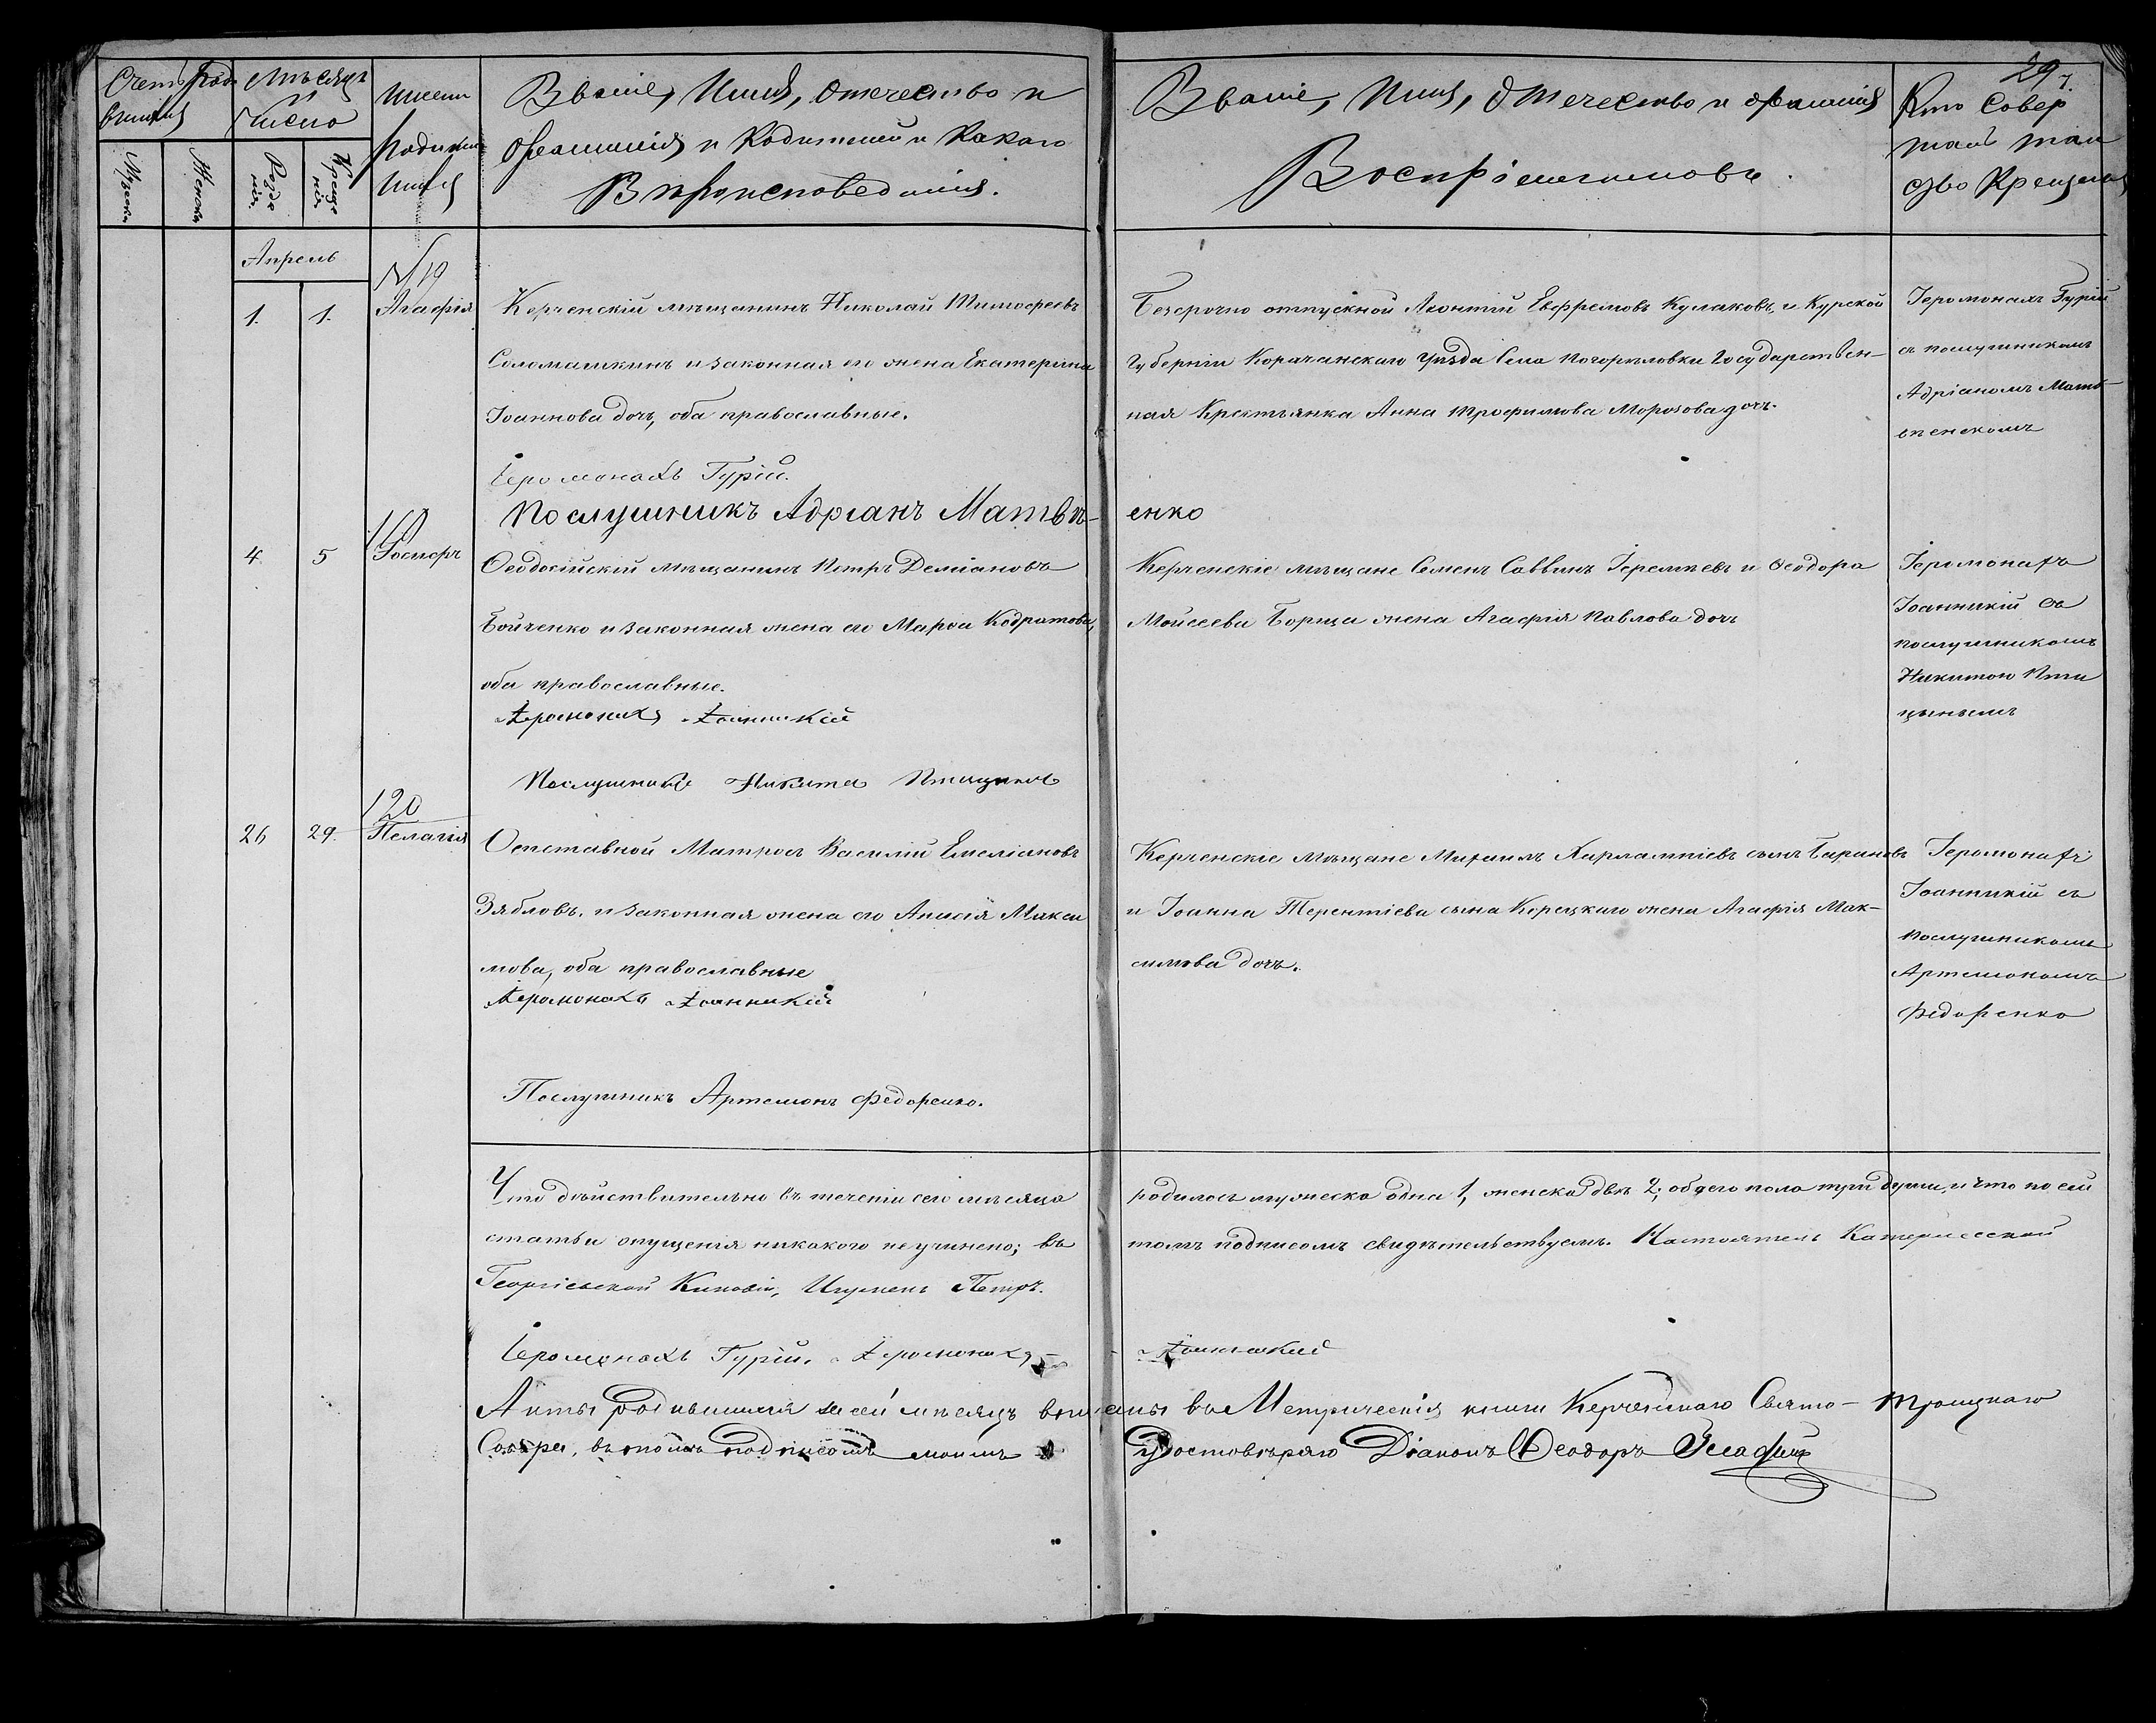 29.
Счетъ Родив
шихся
Мѣсяцъ
и
Число
Имена
Родив
шихся
Званіе, Имя, Отечество и
Фамилія и Родителей и Какого
Вѣроисповеданія.
Званіе, Имя, Отечество и Фамилія
Воспріемниковъ.
Кто Совер
шалъ таи
ство Крещенія
Мужеска
Женска
Рожде
нія
Креще
нія
Апрель
N 19
1.
1.
Агафія
Керченскій мѣщанинъ Николай Тимофеевъ
Соломашкинъ и законная его жена Екатерина
Іоаннова дочь, оба православные.
Іеромонахъ Гурій.
Послушникъ Адріанъ Матвѣ-
енко
Безсрочно отпускной Леонтій Евфремовъ Кулаковъ, и Курской
Губерніи Корачанскаго Уѣзда Села Погорѣловки Государствен-
ная Крестьянка Анна Трофимова Морозова дочь.
Іеромонахъ Гурій
съ послушникомъ
Адріаномъ Матв-
ѣенскомъ
4
5
Феодосійскій мѣщанинъ Петръ Деміановъ
Бойченко и законная жена его Марфа Кодратова,
оба православные.
Іеромонахъ Іоанникій
Послушникъ Никита Птицынъ
Керченскіе мѣщане Семенъ Саввинъ Іеремѣевъ и Феодора
Мойсеева Борща жена Агафія Павлова дочь
Іеромонахъ
Іоанникій съ
послушникомъ
Никитою Пти
цынымъ
20
26
29.
Пелагія
Отставной Матросъ Василій Емеліановъ
Зябловъ, и законная жена его Анисія Макси
мова, оба православные
Іеромонахъ Іоанникій
Послушникъ Артемонъ Федоренко.
Керченскіе Мѣщане Михаилъ Харлампіевъ сынъ Бариновъ
и Іоанна Терентіева сына Корецкаго жена Агафія Мак-
симова дочь.
Іеромонахъ
Іоанникій съ
послушникомъ
Артемономъ
Федоренко
Что дѣйствительно въ теченіи сего мѣсяца
родилось мужеска одна 1, женска двѣ 2; обоего пола три души, и что по сей
статьи опущенія никакого неучинено; въ
томъ подписомъ свидѣтельствуемъ. Настоятель Катерлесской
Георгіевской Киновіи, Игуменъ Петръ.
Іеромонахъ Гурій. Іеромонахъ
Іоанникій
Акты родившихся за сей мѣсяцъ вписаны въ Метрическія книги Керченскаго Свято-Троицкаго
Собора, въ томъ подписомъ моимъ удостовѣряю Діаконъ Феодоръ